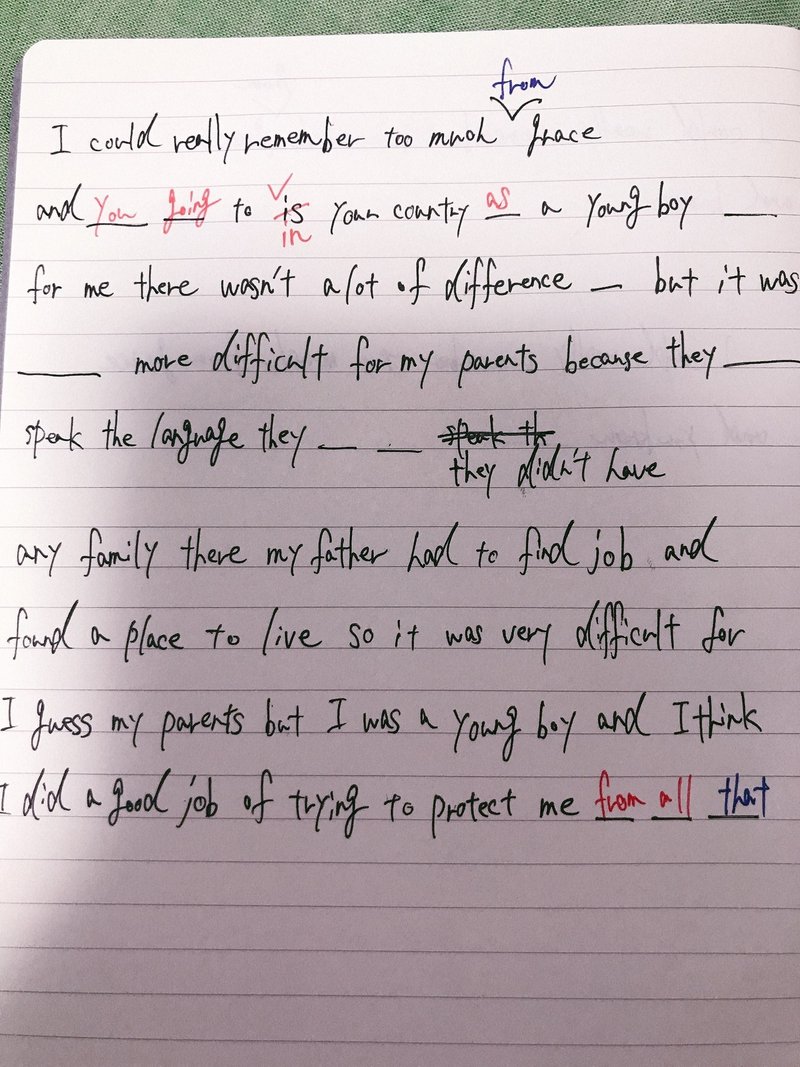 from
I could really remember too much grace
and you going to is your country as a young boy __
in
for me there wasn't a lot of difference _ but it was
____ more difficult for my parents because they ____
speak the language they __ __ speak th
they didn't have
any family there my father had to find job and
found a place to live so it was very difficult for
I guess my parents but I was a young boy and I think
I did a good job of trying to protect me from all that